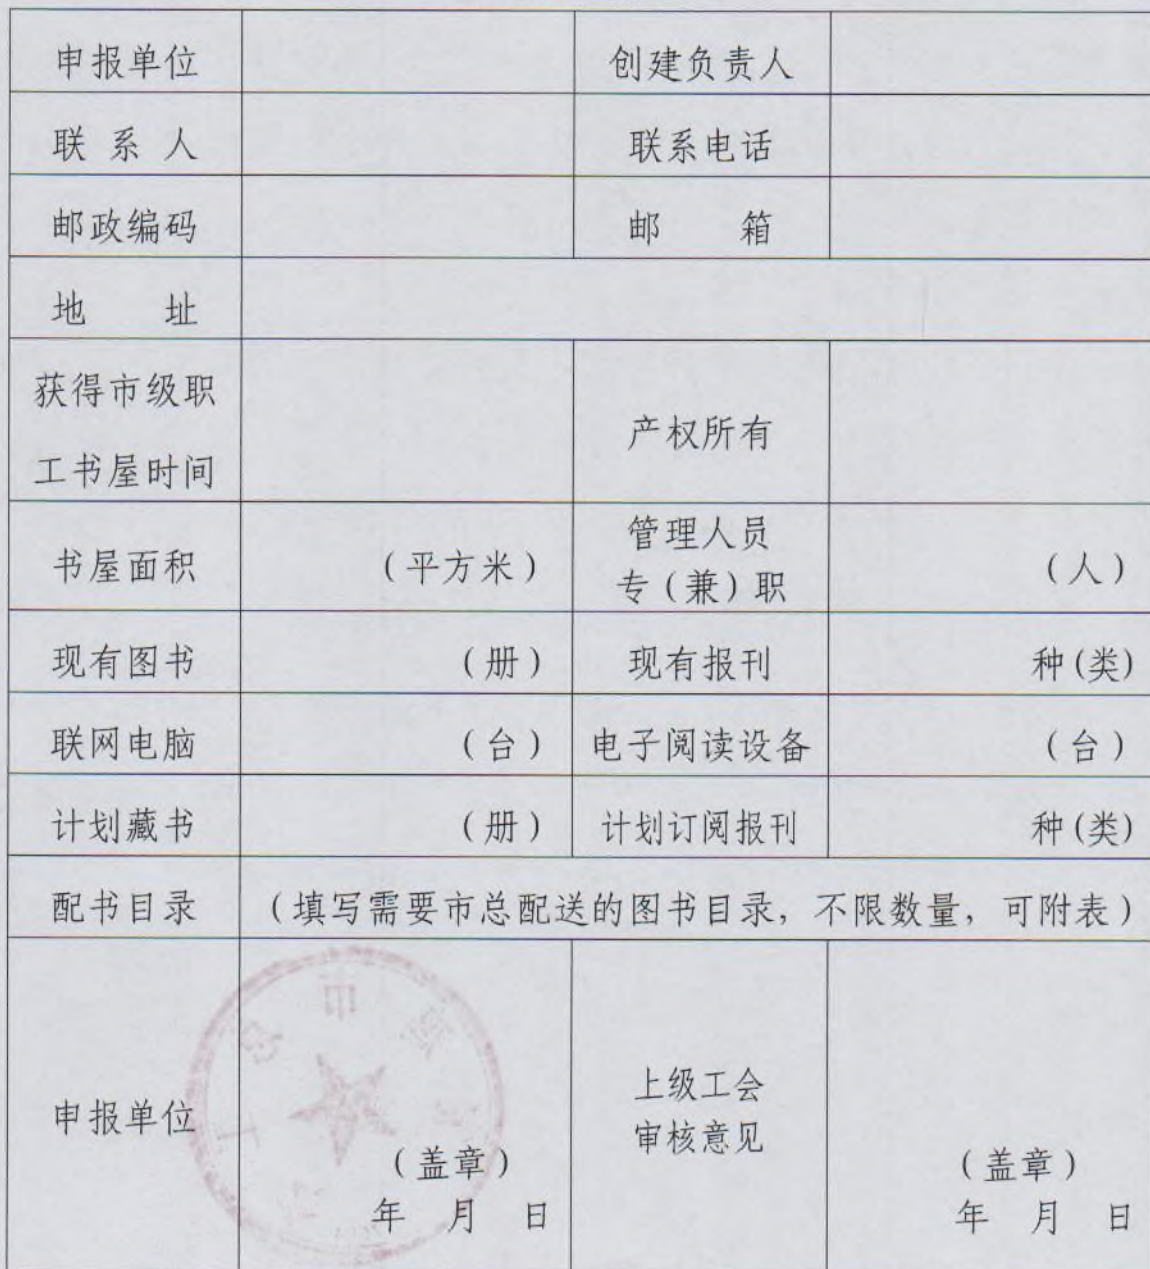 申报单位 创建负责人
联系人 联系电话
邮政编码 邮箱
地址
获得市级职
工书屋时间
产权所有
书屋面积 （平方米）
管理人员
专（兼）职
（人）
现有图书 （册） 现有报刊 种(类)
联网电脑 （台） 电子阅读设备 （台）
计划藏书 （册） 计划订阅报刊 种(类)
配书目录 （填写需要市总配送的图书目录，不限数量，可附表）
申报单位
（盖章）
年 月 日
上级工会
审核意见
（盖章）
年 月 日